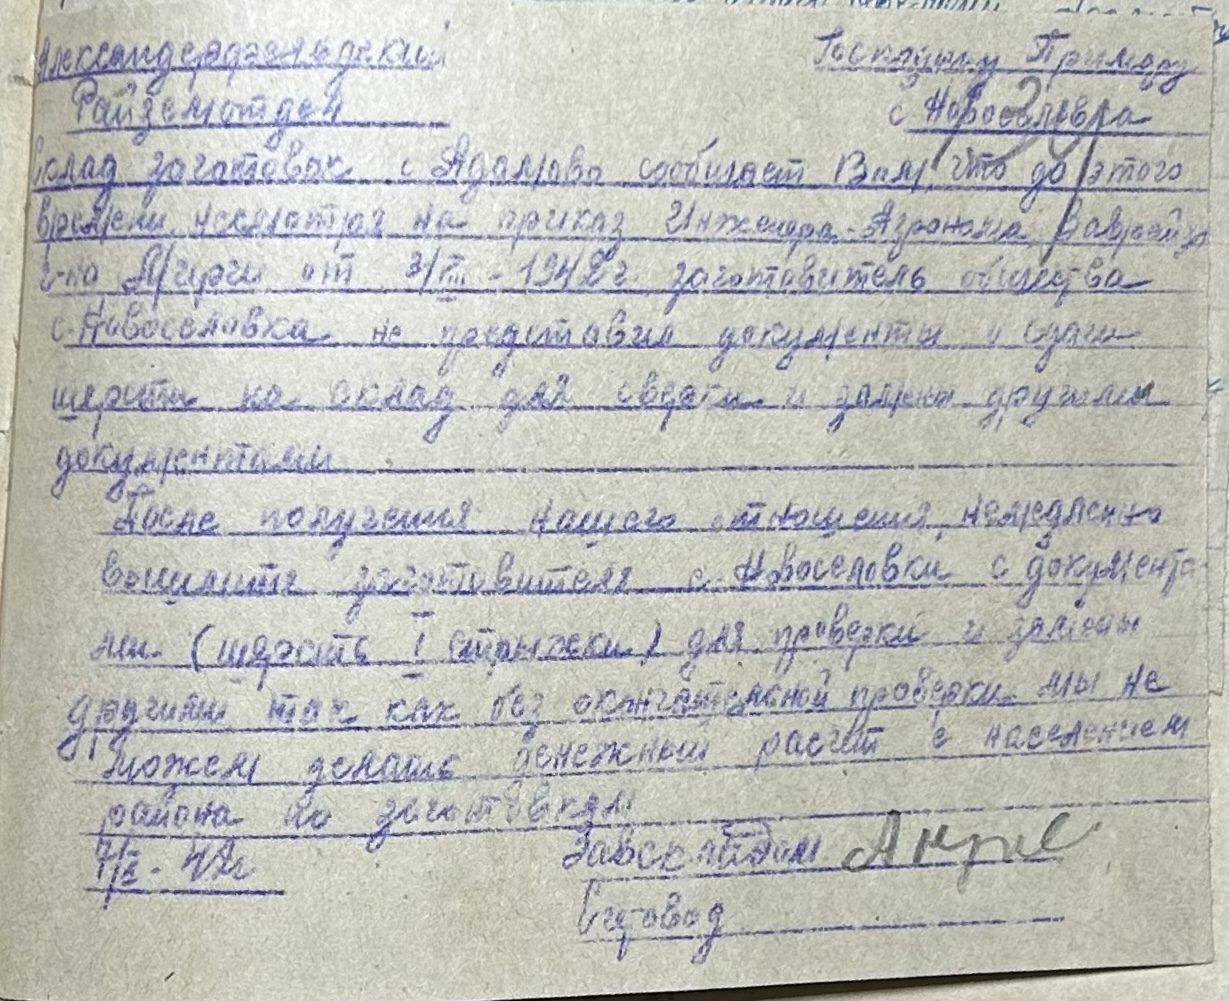 Александерфельдский Господину Примару
Райземотдел с Новоселовка
Склад заготовок с Адамово сообщает Вам, что до этого
времени несмотря на приказ Инженера-Агронома
г-на от 3/ - 1942 г заготовитель общества
с. Новоселовка не представил документы о сдачи
шерсти на склад для сверки и замены другими
документами
После получения нашего отношения, немедленно
вышлите заготовителя с. Новоселовки с документа-
ми (шерсть I стрижки) для проверки и замены
другими так как без окончательной проверки мы не
можем делать денежный расчёт с населением
района по заготовкам
Завскладом
- 42г
Счетовод